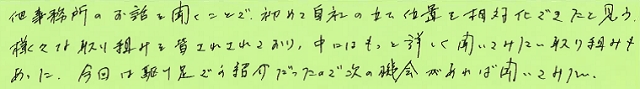 他事務所のお話を聞くことで、初めて自社の立ち位置を相対化できたと思う。
様々な取り組みを皆されており、中にはもっと詳しく聞いてみたい取り組みも
あった。今回は駆け足でご紹介だったので次の機会があれば聞いてみたい。